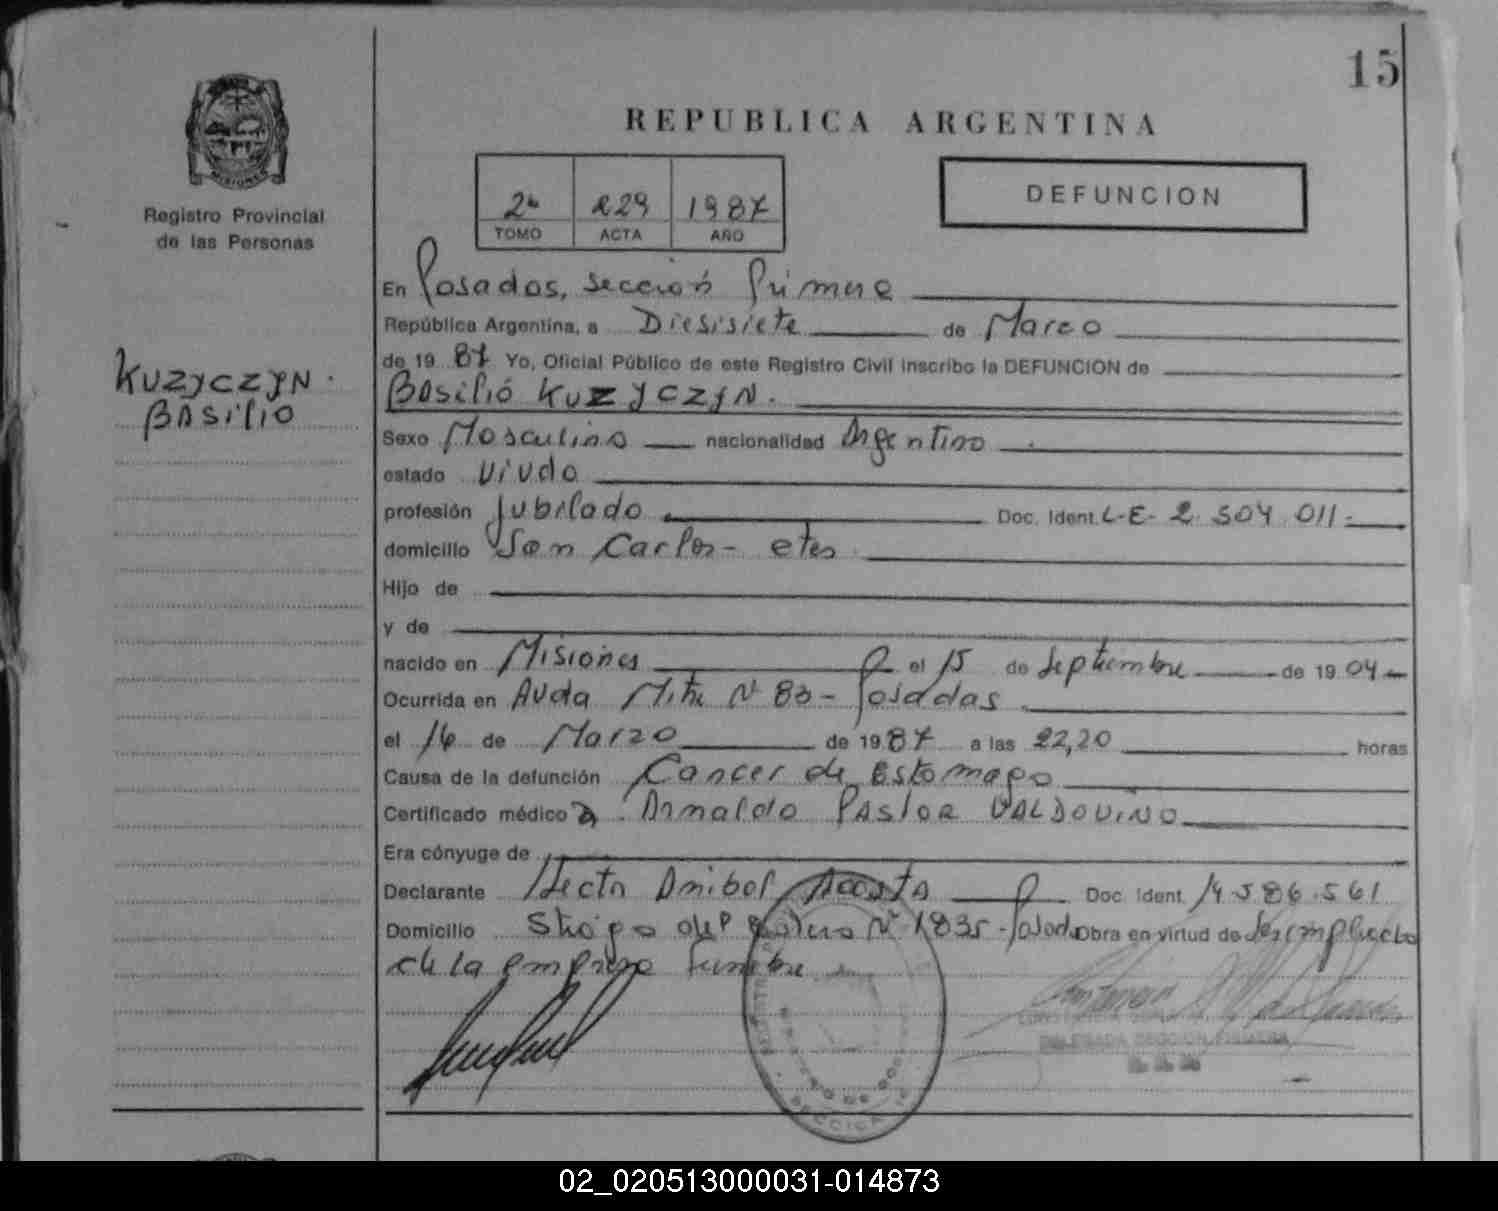 15
REPUBLICA ARGENTINA
DEFUNCION
2º 229 1987
TOMO ACTA AÑO
MISIONES
Registro Provincial
de las Personas
KUZYCZYN.
BASILIO
En Posadas, sección Primera
República Argentina, a Diesisiete de Marzo
de 19 87 Yo, Oficial Público de este Registro Civil inscribo la DEFUNCION de
Basilio KUZYCZYN.
Sexo Masculino nacionalidad Argentino
estado viudo
profesión jubilado Doc. Ident. L-E- 2.504.011-
domicilio San Carlos- ctes
Hijo de
y de
nacido en Misiones el 15 de Septiembre de 19 04
Ocurrida en Avda Mitre Nº 83 - Posadas
el 16 de Marzo de 19 87 a las 22,20 horas
Causa de la defunción Cancer de Estomago
Certificado médico Arnaldo Pastor VALDOVINO
Era cónyuge de
Declarante Hector Anibal Acosta Doc. Ident. 14.586.561
Domicilio Stiago del Estero Nº 1835 - Posadas Obra en virtud de ser empleado
de la empresa funebre
DELEGADA SECCION PRIMERA
02_020513000031-014873